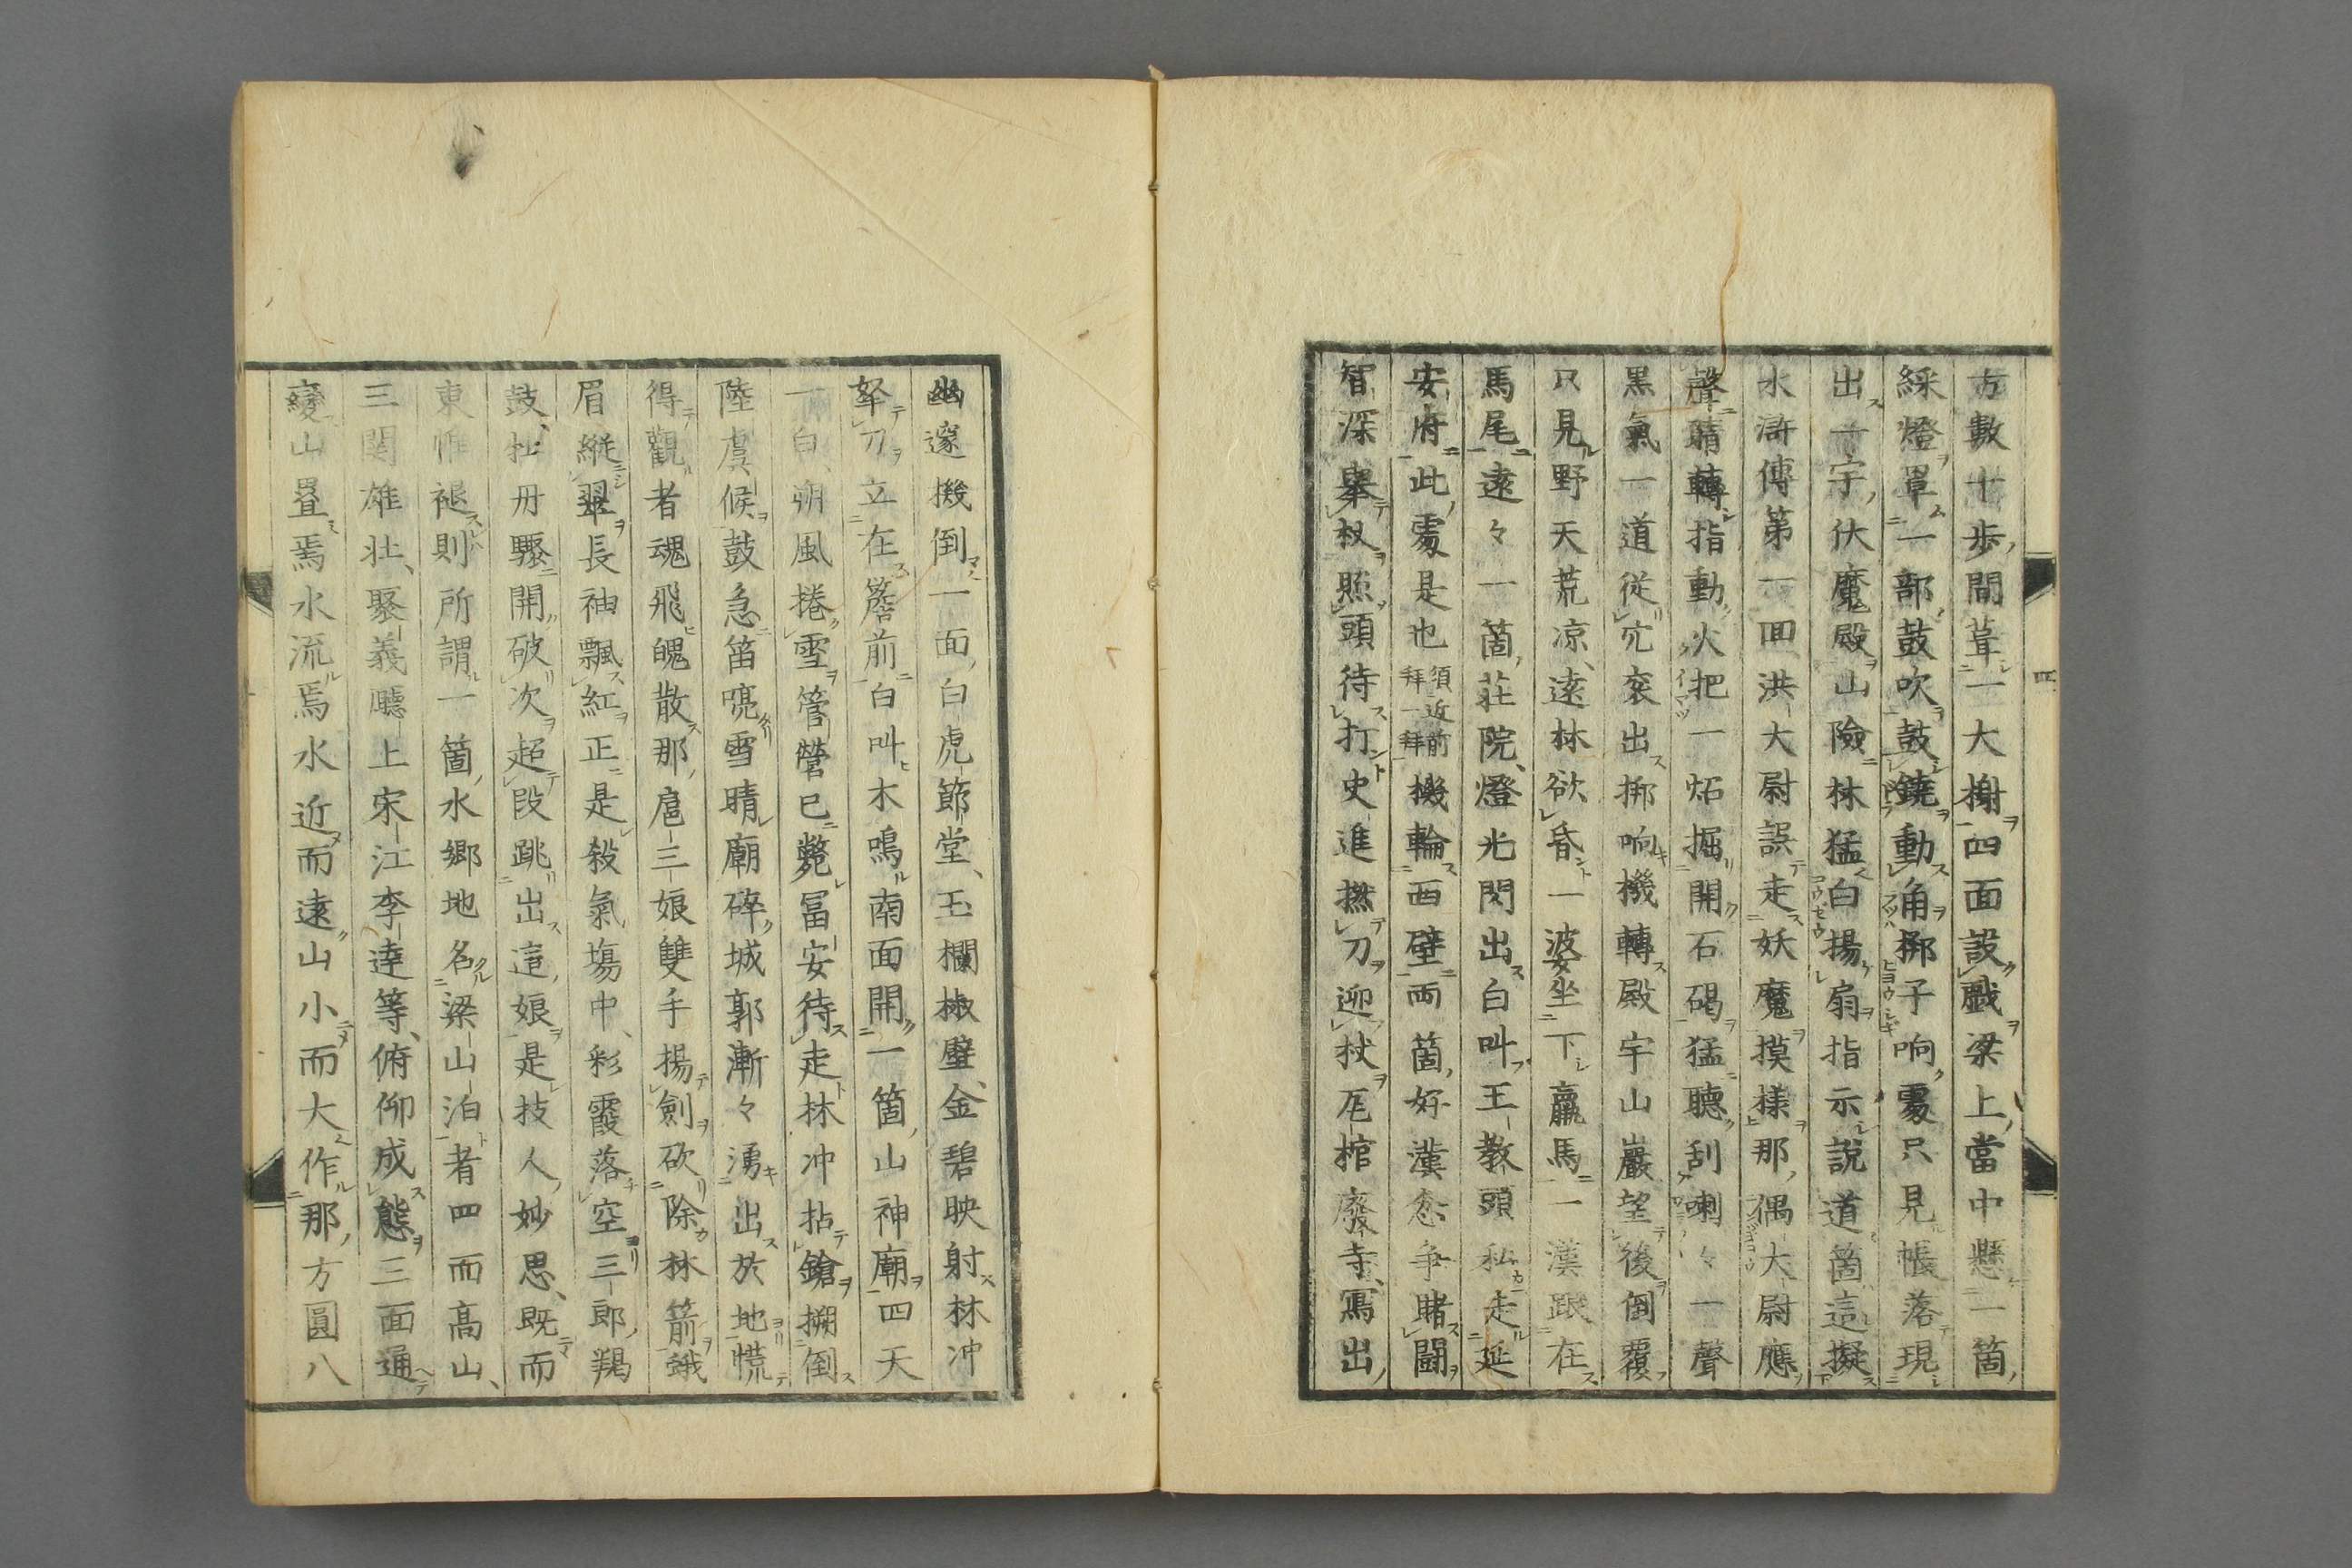 方數十歩間葺一大榭四面設戲梁上當中懸一箇
綵燈罩一部鼓吹鼓鐃動角梆子响處只見帳落現
出一宇伏魔殿山險林猛白揚扇指示說道箇這擬
水滸傳第一囬洪大尉誤走妖魔摸樣那偶大尉應
聲睛轉指動火把一炻掘開石碣猛聽刮喇々一聲
黒氣一道從穴衮出梆响機轉殿宇山巖望後倒覆
只見野天荒凉遠林欲昏一婆坐下羸馬一漢跟在
馬尾遠々一箇莊院燈光閃出白叫王教頭私走延
安府此處是也須近前拜一拜機輪西壁両箇好漢忿争賭闘
智深舉杖照頭待打史進撚刀迎杖厐棺廢寺寫出
幽邃機倒一面白虎節堂玉欄椒壁金碧映射林冲
拏刀立在簷前白叫木鳴南面開一箇山神廟四天
一白朔風捲雪管營已斃冨安待走林冲拈鎗搠倒
陸虞候鼓急笛喨雪晴廟碎城郭漸々湧出於地慌
得觀者魂飛魄散那扈三娘雙手揚劍砍除林箭蛾
眉縱翠長袖飄紅正是殺氣塲中彩霞落空三郎羯
鼓扯丹驟開破次超段跳出這娘是技人妙思既而
東帷褪則所謂一箇水郷地名梁山泊者四而高山
三関雄壮聚義廳上宋江李逵等俯仰成態三面通
變山疊焉水流焉水近而遠山小而大作那方圓八
四